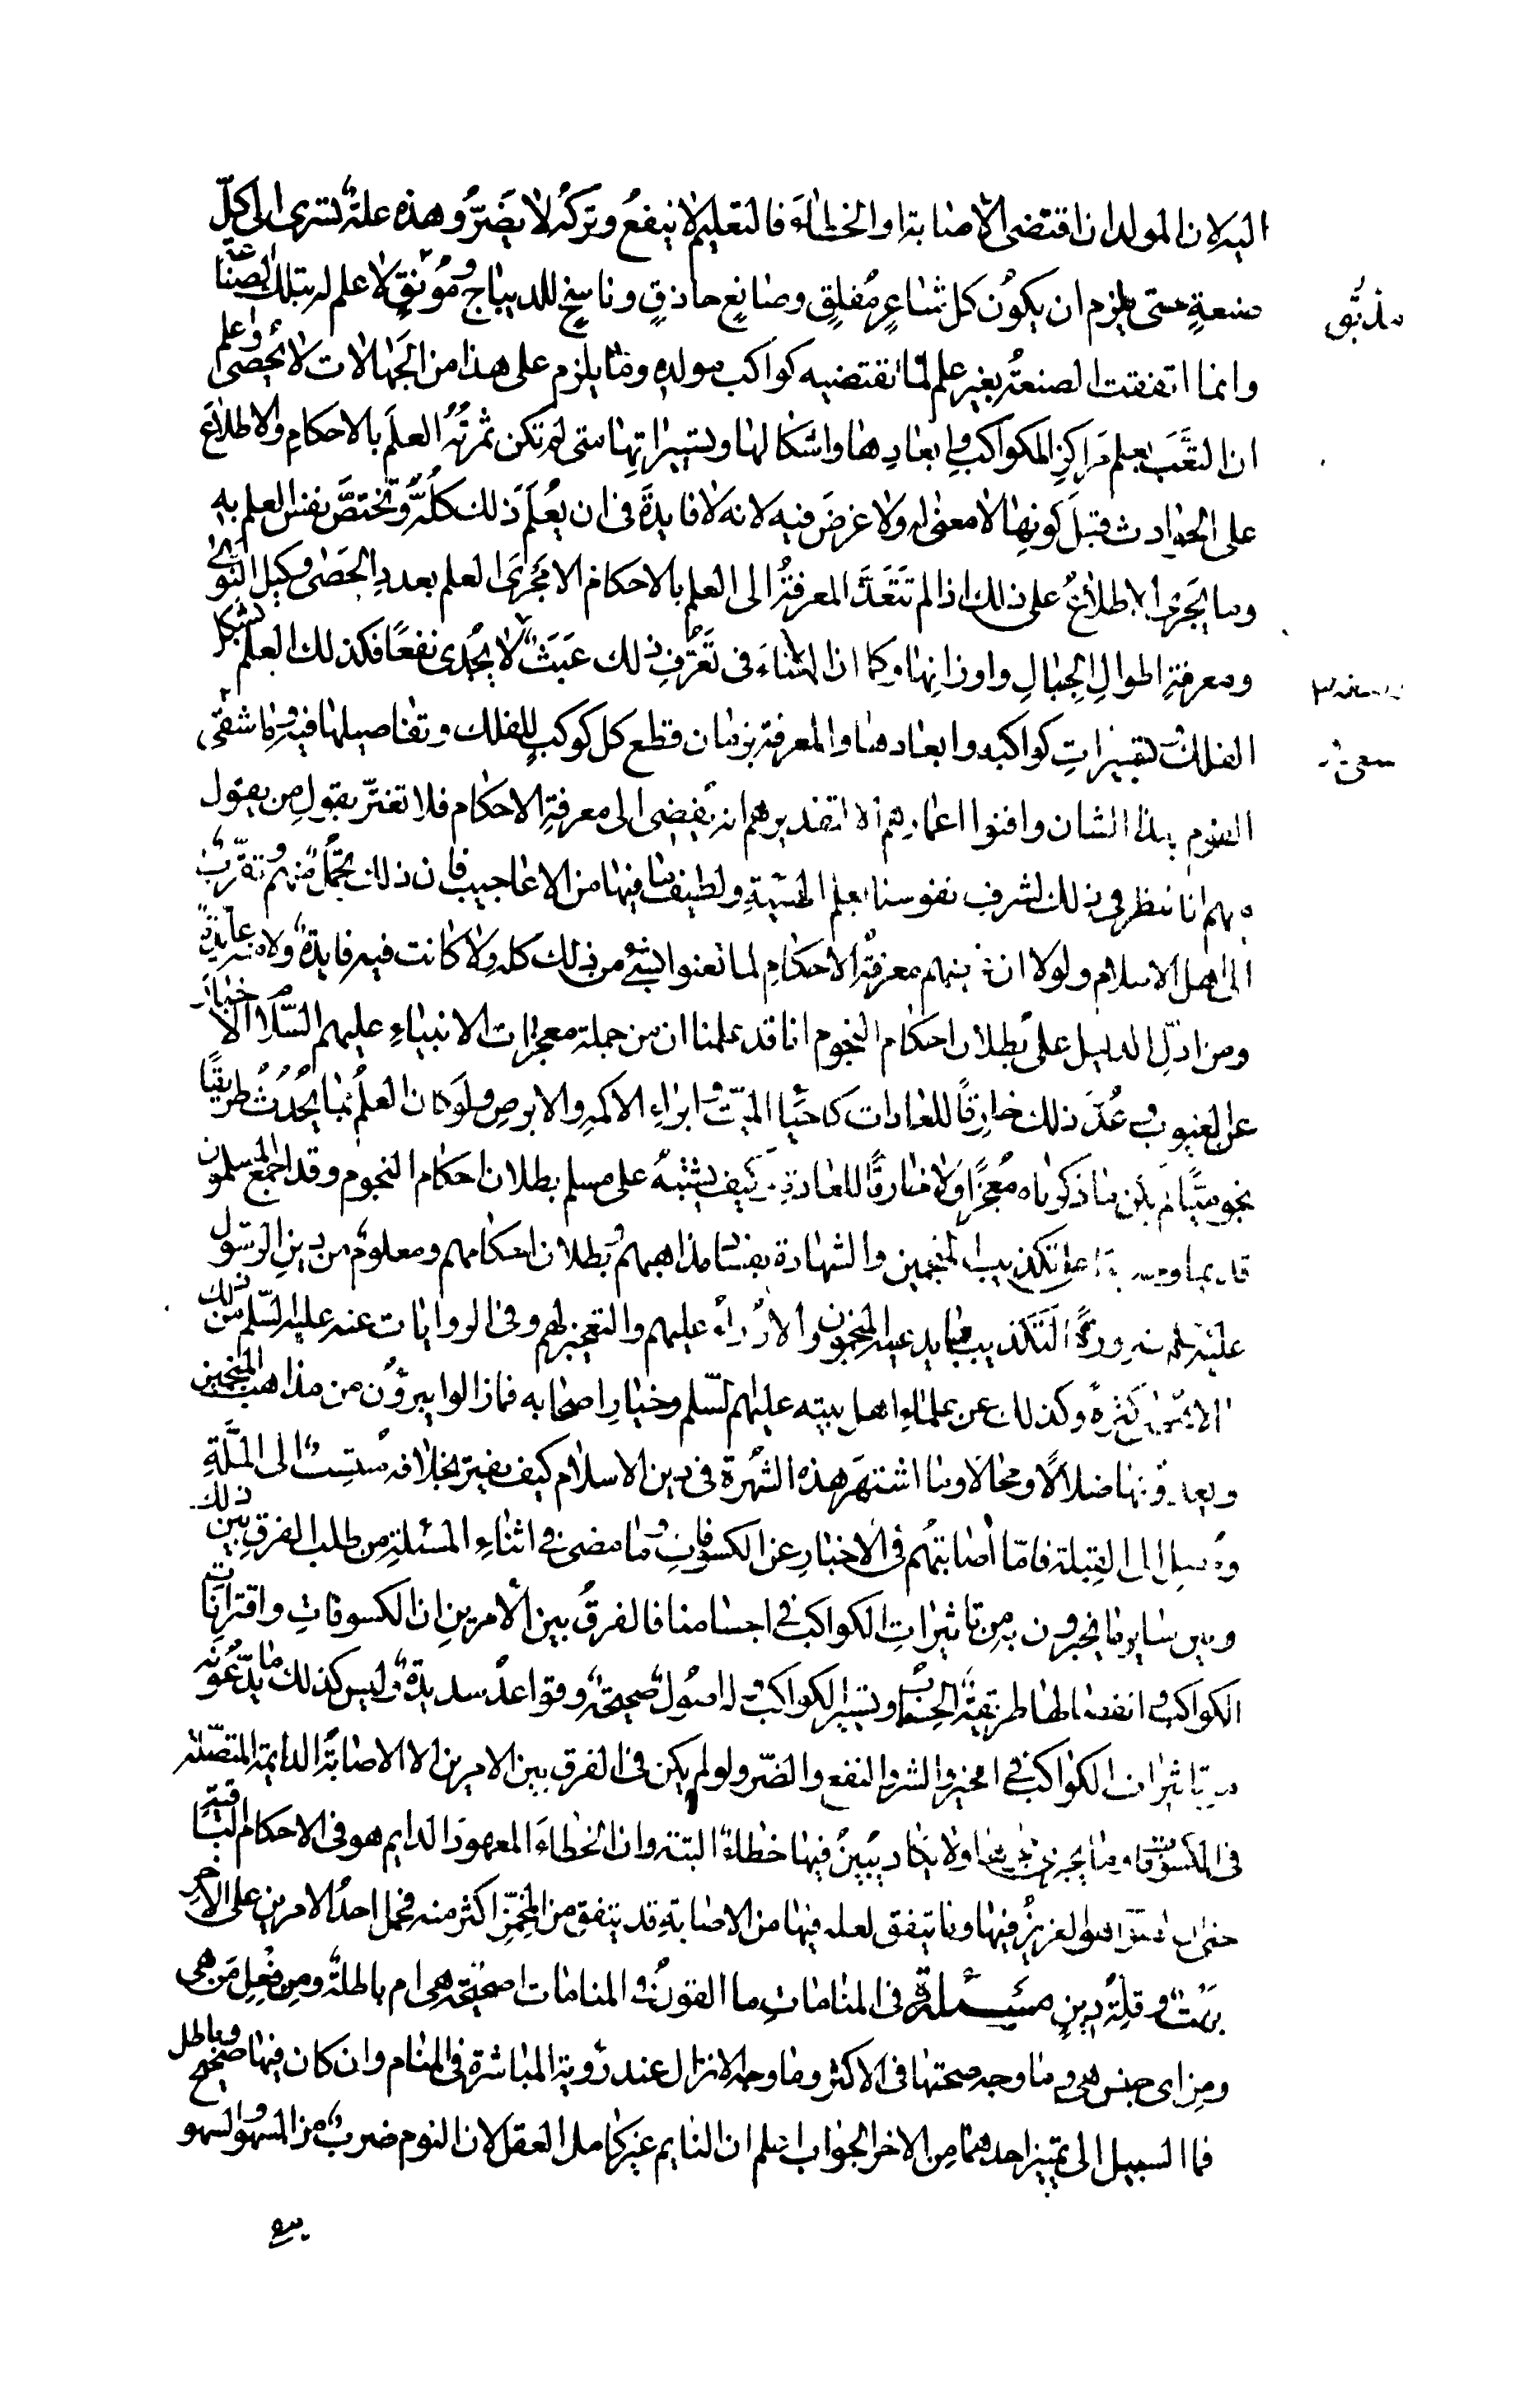 اليه لان المولد ان اقتضى الاصابة او الخطاء فالتعليم لا ينفع وتركه لا يضرّ وهذه علة تسرى الى كلّ
صنعةٍ حتى يلزم ان يكون كل شاعرٍ مُفلقٍ وصانعٍ حاذقٍ وناسخٍ للديباج ومونقٍ لا علم له بتلك الصناعة
وانما اتفقت الصنعةُ بغير علم لما تقتضيه كواكب مولده وما يلزم على هذا من الجهالات لا يُحصى واعلم
ان التعَبَ بعلم مَراكزِ الكواكب وابعادِها واشكالها وتسييراتِها متى لم تكن ثمرتُه العلمَ بالاحكامِ والاطلاعَ
على الحوادث قبلَ كونِها لا معنى له ولا غرضَ فيه لانه لا فايدةَ فى ان يُعلَم ذلك كلُّه ويختصَّ نفس العلم به
وما يَجرى الاطلاعُ على ذلك اذا لم تَتَعَدَّ المعرفةُ الى العلم بالاحكام الا مَجْرَى العلم بعددِ الحَصَى وكيلِ النَّوى
ومعرفةِ اطوالِ الجبالِ واوزانِها وكما ان العناءَ فى تَعَرُّفِ ذلك عَبَثٌ لا يُجْدى نفعًا فكذلك العلم بشكل
الفلك وتسييراتِ كواكبه وابعادها والمعرفة بزمان قطع كل كوكبٍ للفلك وتفاصيلها فيه وما شقى
القوم بهذا الشان وافنوا اعمارهم الا لتقديرهم انه يُفضى الى معرفةِ الاحكام فلا تغترّ بقولِ من يقول
منهم انا ننظر فى ذلك لشرف نفوسنا بعلم الهيئةِ ولطيف ما فيها من الاعاجيب فان ذلك تجمّل منهم وتقرّبٌ
الى اهل الاسلام ولولا ان معرفةُ الاحكامِ لما تعنوا بشئ من ذلك كله ولا كانت فيه فايدةٌ ولا منه عايدةٌ
ومن ادلّ الدليل على بُطلان احكام النجوم انا قد علمنا ان من جملة معجزات الانبياءِ عليهم السّلام الاخبار
عن الغيوب وعُدّ ذلك خارِقًا للعادات كاحياء الميّت وابراءِ الاكمهِ والابرصِ ولو كان العلمُ بما يحدُث طريقًا
نجوميًّا لم يكن ما ذكرناه مُعجزًا ولا خارقًا للعادةِ كيف يشتبهُ على مسلم بطلان احكام النجوم وقد اجمع المسلمون
قديما وحديثا على تكذيب المنجمين والشهادة بفساد مذاهبهم وبطلان احكامهم ومعلومٌ من دينِ الرسول
عليه ضرورةً التكذيب بما يدعيه المنجمون والازراءُ عليهم والتعجيز لهم وفى الروايات عنه عليه السّلم من ذلك
كثيرةً وكذلك عن علماءِ اهل بيته عليهم السّلم وخيارِ اصحابه فمازالوا يبرؤن من مذاهب المنجمين
ويعدّونها ضلالًا ومحالا وما اشتهَر هذه الشهرة فى دين الاسلام كيف يفتى بخلافه منتسبٌ الى المَلّةِ
الى القبلة فامّا اصابتهم فى الاخبار عن الكسوفاتِ وما مضى فى اثناءِ المسئلة من طلب الفرقِ بين ذلك
وبين سايرِ ما يخبرون به من تاثيراتِ الكواكب فى اجسامنا فالفرقُ بين الامرين ان الكسوفاتِ واقتراناتِ
الكواكب وانفصالها طريقُه الحسابُ وتسييرِ الكواكب وله اصولٌ صحيحةٌ وقواعدُ سديدةٌ وليس كذلك ما يدّعُونه
من تاثيرات الكواكب فى الخير والشر والنفع والضّر ولو لم يكن فى الفرق بين الامرين الا الاصابةُ الدايمة المتصلة
فى الكسوفات وما يجرى مجراها ولا يكاد يُبينُ فيها خطاءٌ البتة وان الخطاءَ المعهودَ الدايم هو فى الاحكام الباقية
العزيزُ فيها وما يتفق لعله فيها من الاصابةِ قد يتفق من المخمّن اكثر منه فحمل احدُ الامرين على الاخر
بهتٌ وقلةُ دينٍ مسئلة فى المناماتِ ما القولُ فى المنامات اصحيحة هى ام باطلةٌ ومِن فِعلِ مَن هى
ومن اى جنس هى وما وجه صحتها فى الاكثر وما وجه الانزال عند رؤية المباشرة فى المنام وان كان فيها صحيح وباطل
فما السبيل الى تمييز احدهما من الاخر الجواب اعلم ان النايم غير كامل العقل لان النوم ضربٌ من السهو والسهو